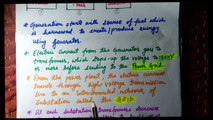 * Generation starts with source of fuel which
is harnessed to create/produce energy
using generator.
* Electric current from the generators goes to
transformer, which steps up the voltage to
or more before sending to the Power Grid.
* From the power plant, the electric current
travels through high-voltage transmission
line to an interconnected network of
Substation called the GRID.
* At and substation transformer decreases